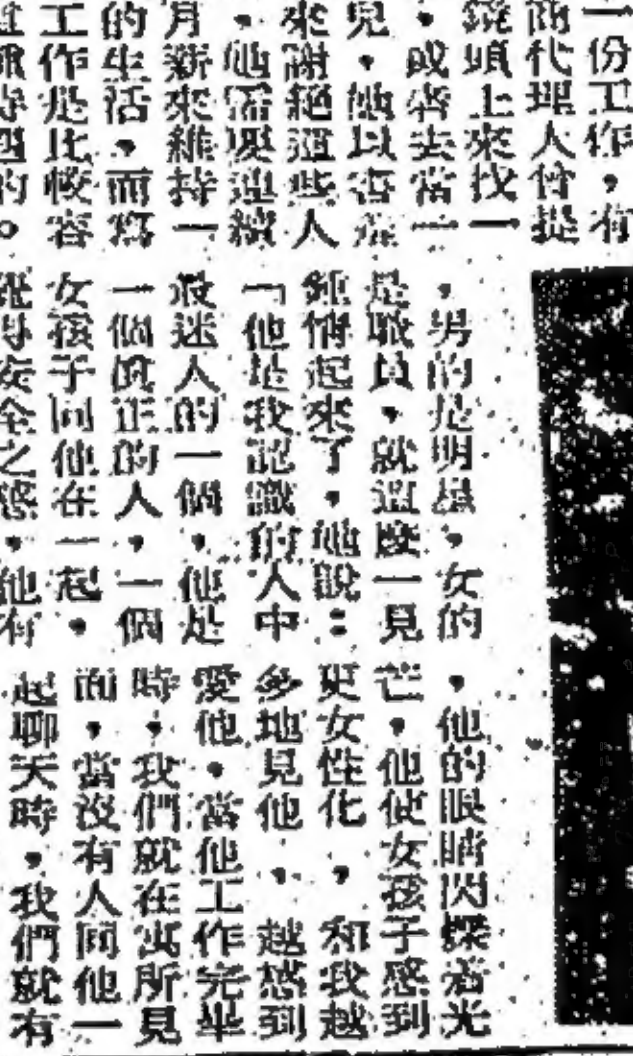 一份工作，有
商代理人曾提
鏡頭上來找一
，或者去當一
兒，他以害羞
來謝絕這些人
。他需要連續
月薪來維持一
的生活，而寫
工作是比較容
的。
，男的是明星，女的
是職員，就這麼一見
鍾情起來了，他說：
「他是我認識的人中
最迷人的一個，他是
一個真正的人，一個
女孩子同他在一起，
覺得安全之感，他有
，他的眼睛閃爍着光
芒，他使女孩子感到
更女性化，和我越
多地見他，越感到
愛他。當他工作完畢
時，我們就在寓所見
面，當沒有人同他一
起聊天時，我們就有